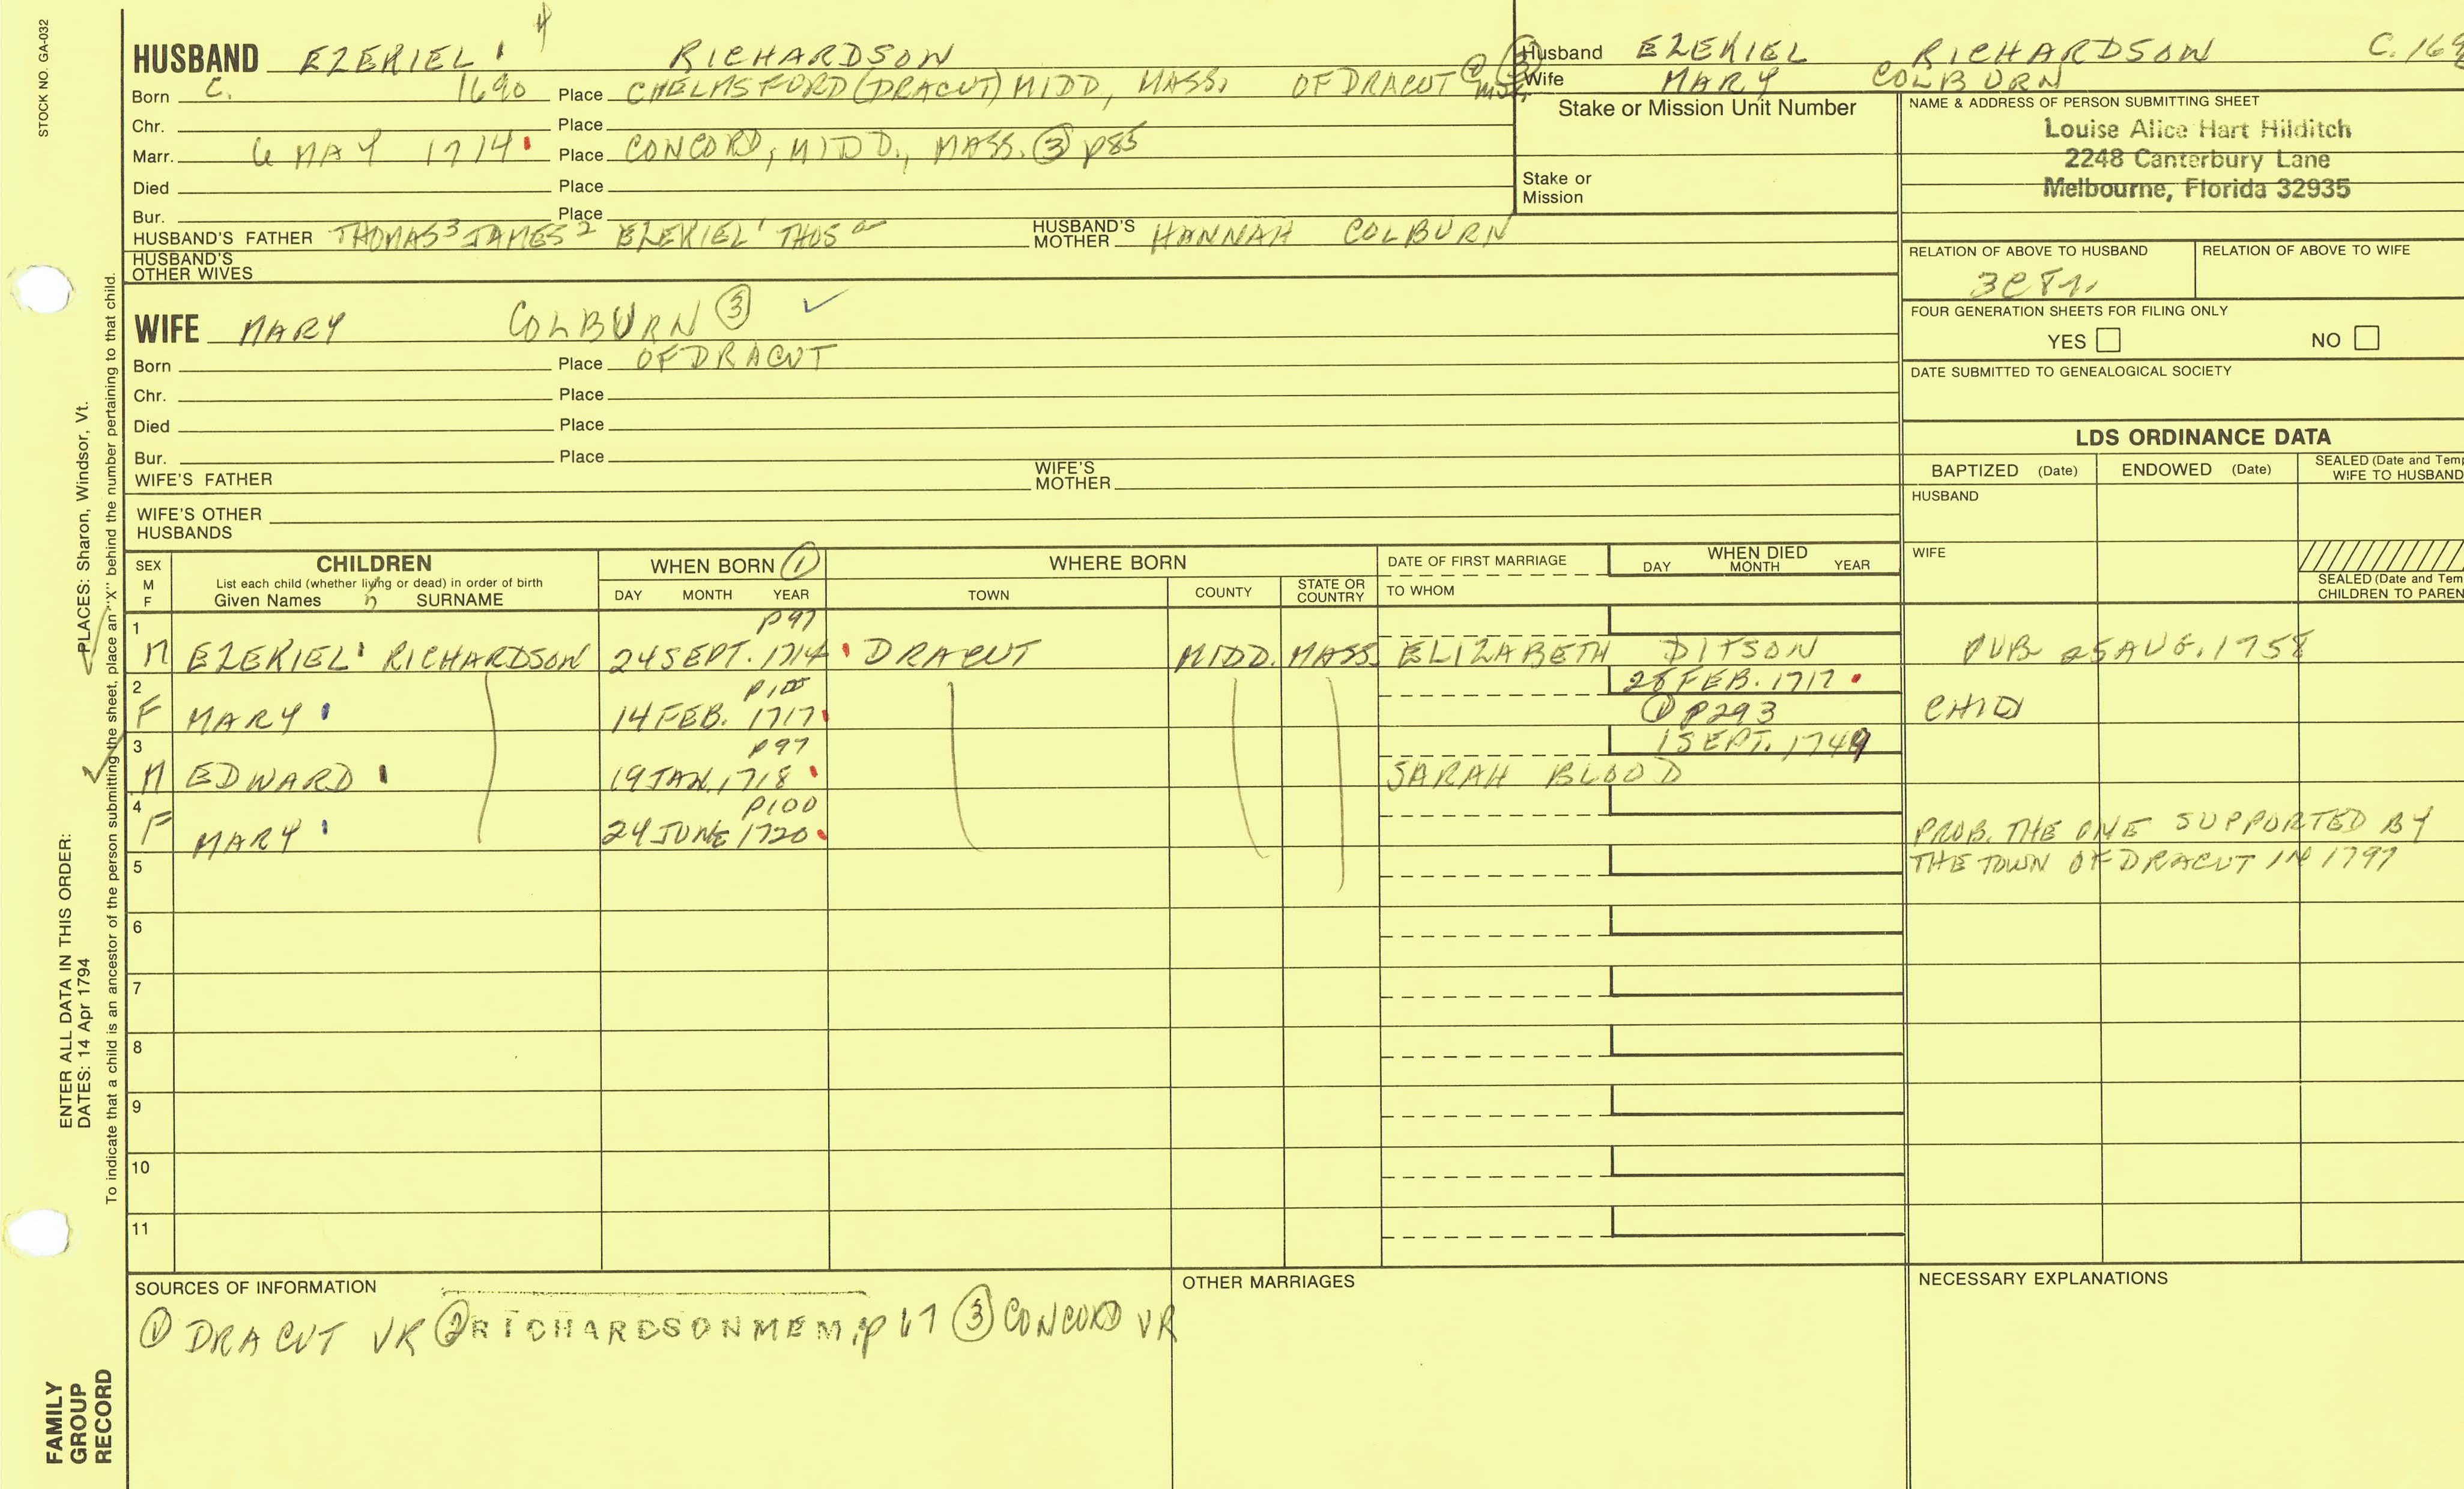 STOCK NO. GA-032
HUSBAND EZEKIEL 4 RICHARDSON
Born C. 1690 Place CHELMSFORD (DRACUT) MIDD, MASS. OF DRACUT
Chr. Place
Marr. 6 MAY 1714 Place CONCORD, MIDD., MASS. ③ p85
Died Place
Bur. Place
HUSBAND'S FATHER THOMAS3 JAMES2 EZEKIEL1 THOS HUSBAND'S MOTHER HANNAH COLBURN
HUSBAND'S OTHER WIVES
WIFE MARY COLBURN ③ ✓
Born Place OF DRACUT
Chr. Place
Died Place
Bur. Place
WIFE'S FATHER WIFE'S MOTHER
WIFE'S OTHER HUSBANDS
Husband EZEKIEL RICHARDSON
Wife MARY COLBURN
Stake or Mission Unit Number
Stake or Mission
NAME & ADDRESS OF PERSON SUBMITTING SHEET
Louise Alice Hart Hilditch
2248 Canterbury Lane
Melbourne, Florida 32935
RELATION OF ABOVE TO HUSBAND RELATION OF ABOVE TO WIFE
FOUR GENERATION SHEETS FOR FILING ONLY
YES NO
DATE SUBMITTED TO GENEALOGICAL SOCIETY
LDS ORDINANCE DATA
BAPTIZED (Date) ENDOWED (Date) SEALED (Date and Tem
WIFE TO HUSBAND
HUSBAND
WIFE
SEALED (Date and Tem
CHILDREN TO PAREN
SEX M F CHILDREN WHEN BORN ① WHERE BORN DATE OF FIRST MARRIAGE WHEN DIED
List each child (whether living or dead) in order of birth
Given Names SURNAME DAY MONTH YEAR TOWN COUNTY STATE OR COUNTRY TO WHOM DAY MONTH YEAR
1 p97
M EZEKIEL RICHARDSON 24 SEPT. 1714 DRACUT MIDD. MASS. ELIZABETH DITSON PUB 25 AUG. 1758
2 p100 28 FEB. 1717
F MARY 14 FEB. 1717 ① P293 CHID
3 p97 1 SEPT. 1749
M EDWARD 19 JAN. 1718 SARAH BLOOD
4 p100
F MARY 24 JUNE 1720 PROB. THE ONE SUPPORTED BY
5 THE TOWN OF DRACUT IN 1797
6
7
8
9
10
11
SOURCES OF INFORMATION
① DRACUT VR ② RICHARDSON MEM, p 67 ③ CONCORD VR
OTHER MARRIAGES
NECESSARY EXPLANATIONS
ENTER ALL DATA IN THIS ORDER:
DATES: 14 Apr 1794 PLACES: Sharon, Windsor, Vt.
To indicate that a child is an ancestor of the person submitting the sheet, place an "X" behind the number pertaining to that child.
FAMILY
GROUP
RECORD